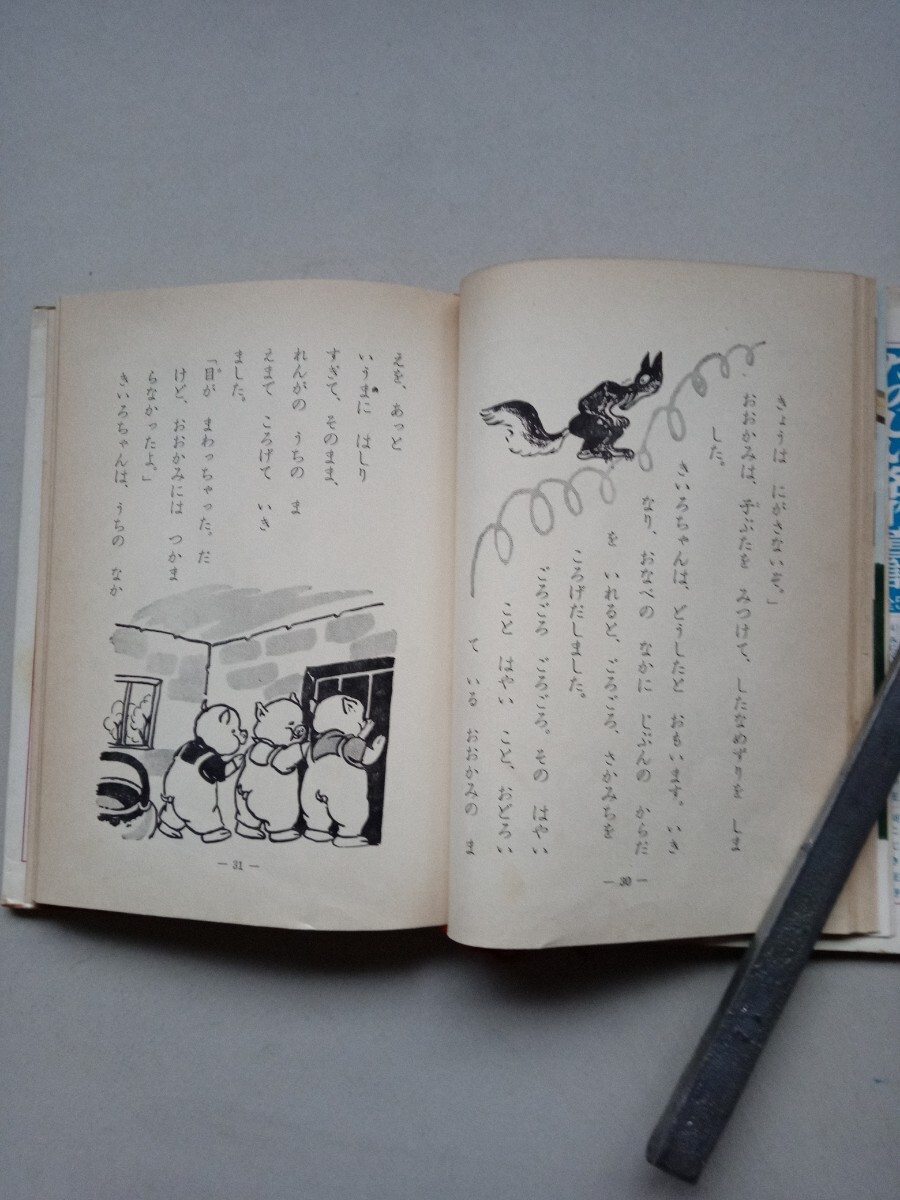 きょうは にがさないぞ。」
おおかみは、子ぶたを みつけて、したなめずりを しま
した。
きいろちゃんは、どうしたと おもいます。いき
なり、おなべの なかに じぶんの からだ
を いれると、ごろごろ、さかみちを
ころげだしました。
ごろごろ ごろごろ。その はやい
こと はやい こと、おどろい
て いる おおかみの ま
— 30 —
えを、あっと
いうまに はしり
すぎて、そのまま、
れんがの うちの ま
えまで ころげて いき
ました。
「目が まわっちゃった。だ
けど、おおかみには つかま
らなかったよ。」
きいろちゃんは、うちの なか
— 31 —